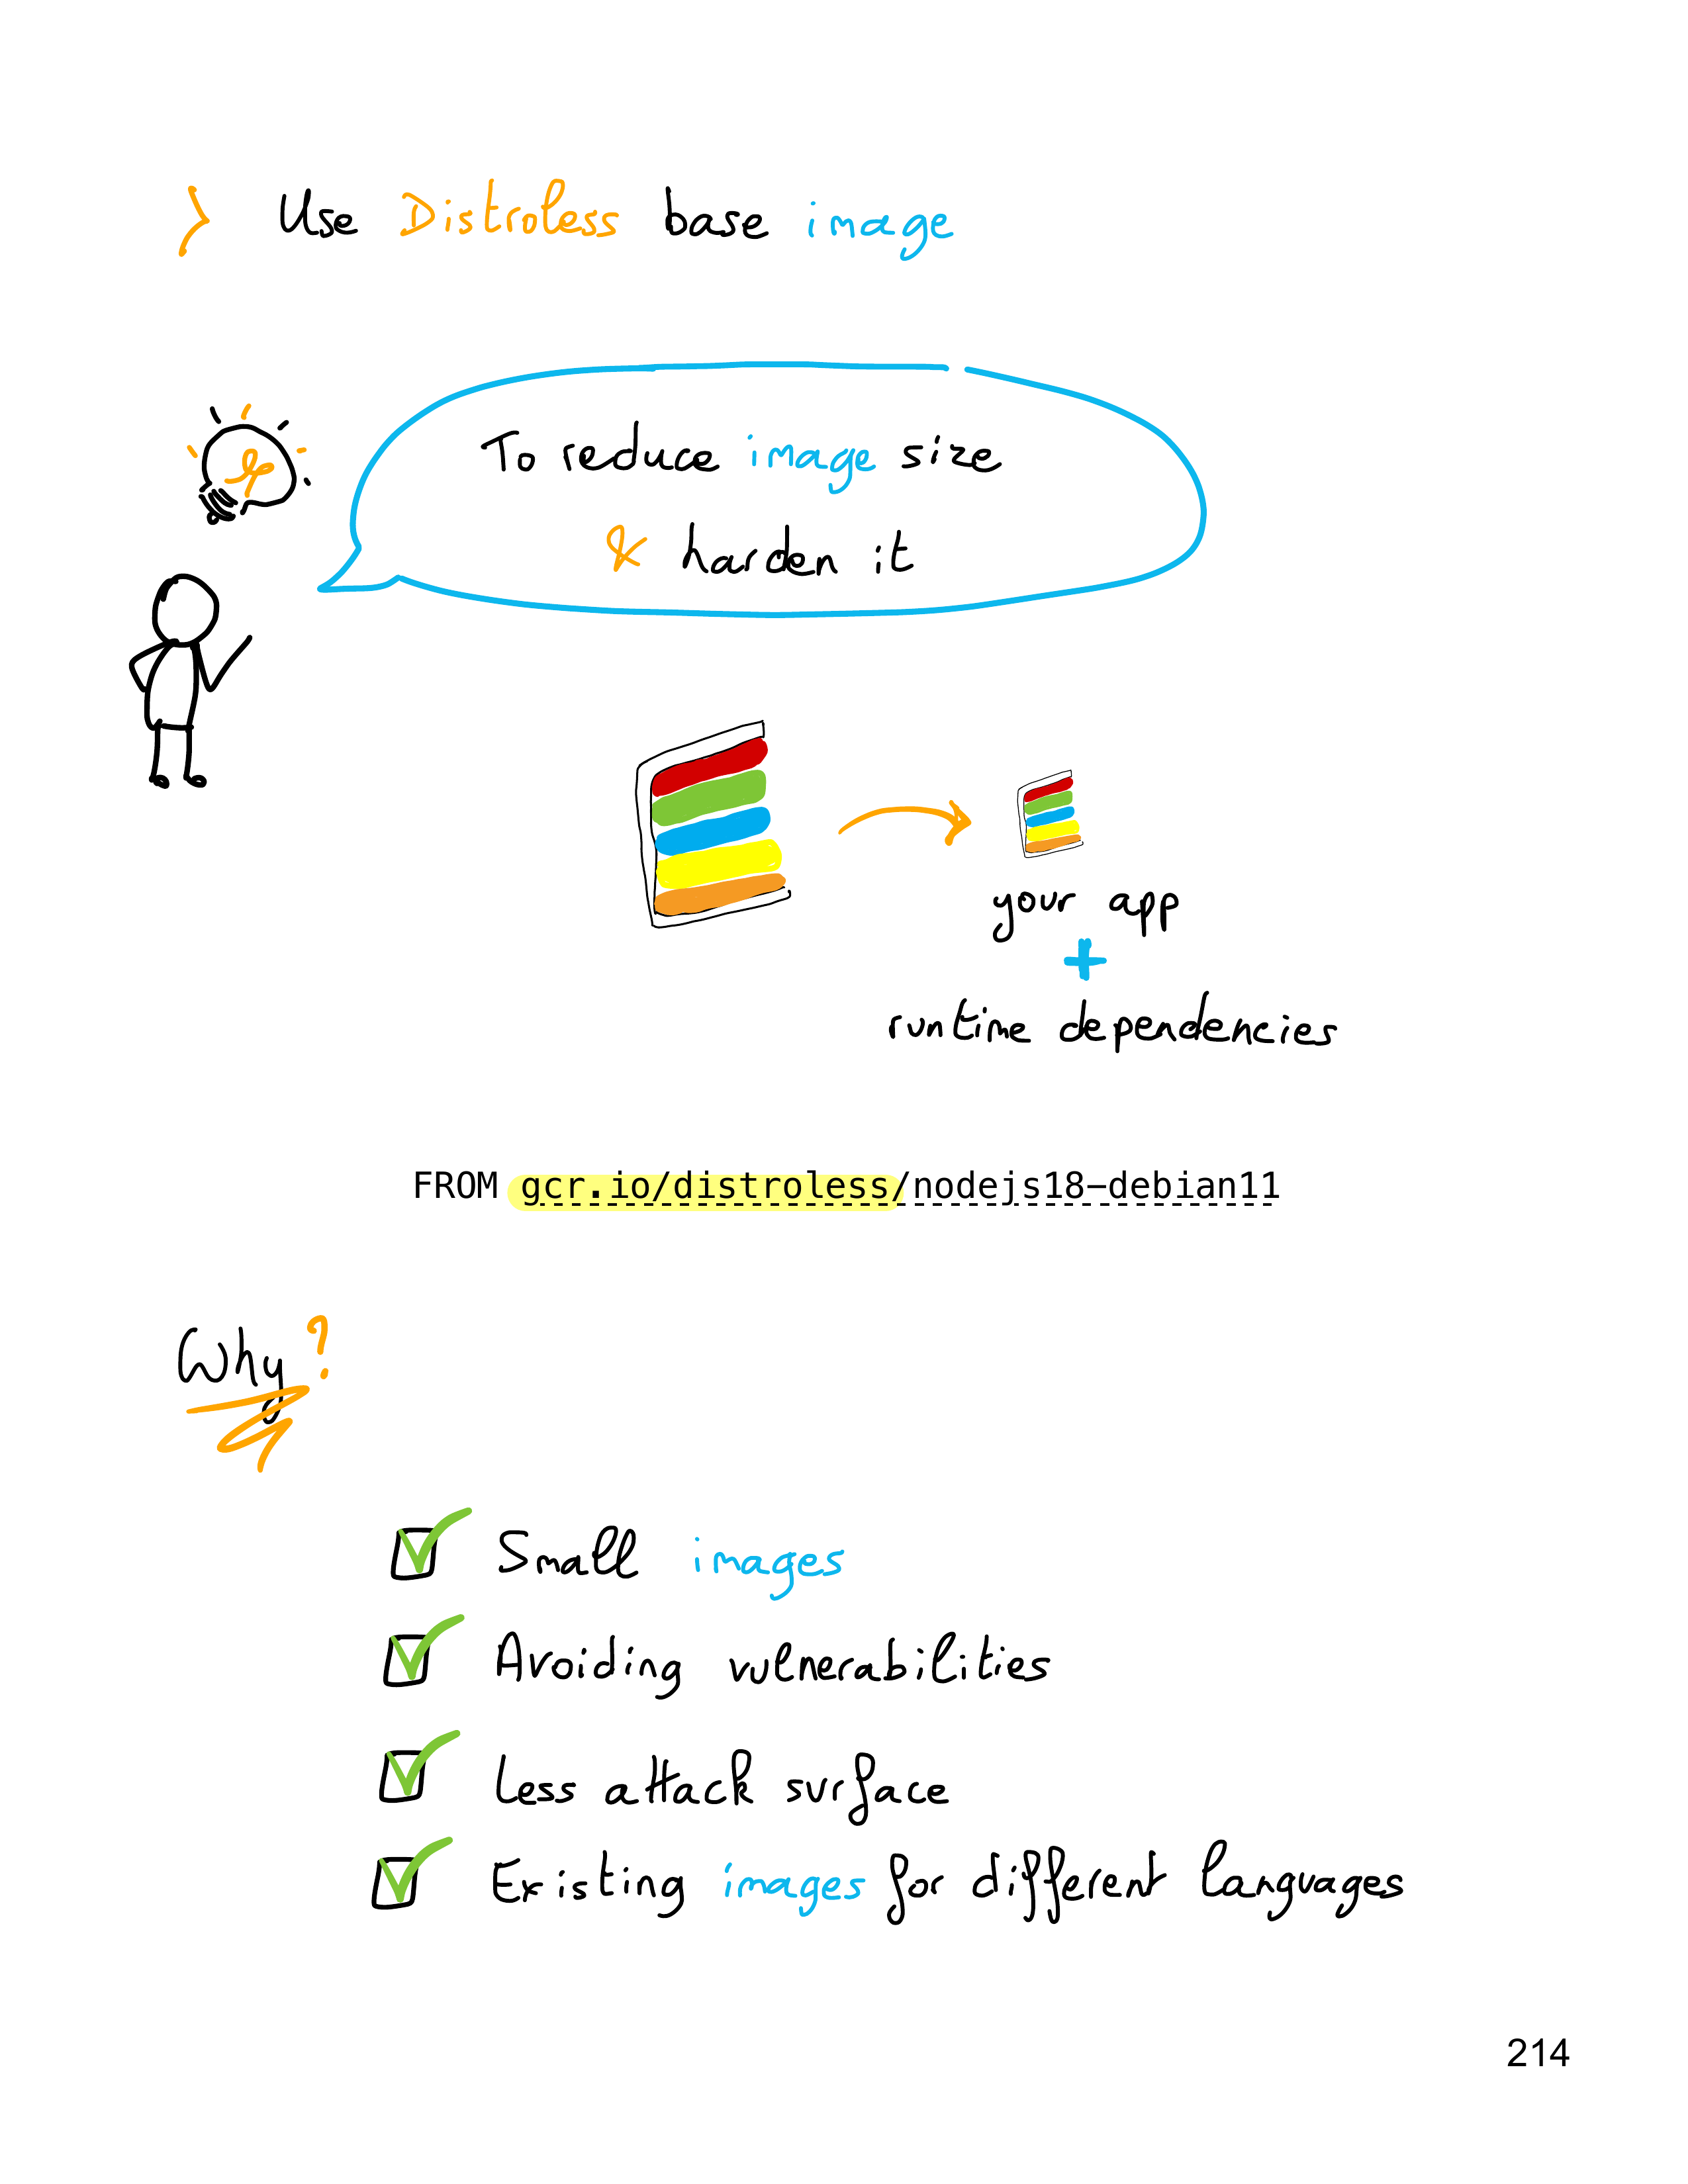 Use Distroless base image
To reduce image size
& harden it
your app
+
runtime dependencies
FROM gcr.io/distroless/nodejs18-debian11
Why?
Small images
Avoiding vulnerabilities
Less attack surface
Existing images for different languages
214